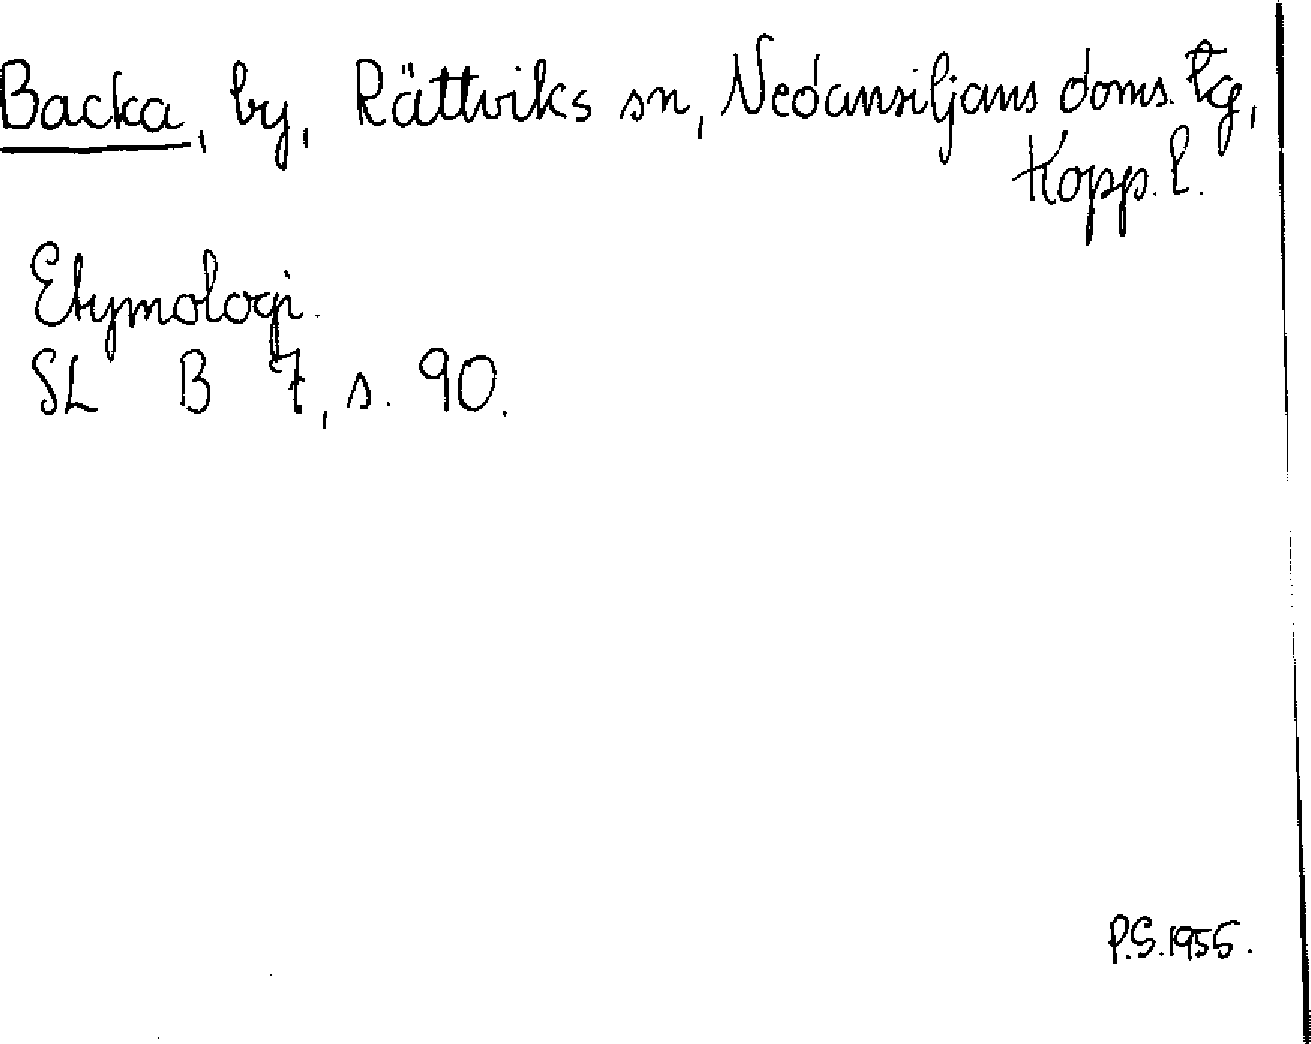 Backa, by, Rättviks sn, Nedansiljans doms. tg,
Kopp. l.
Etymologi.
SL B 7, s. 90.
P.S. 1955.